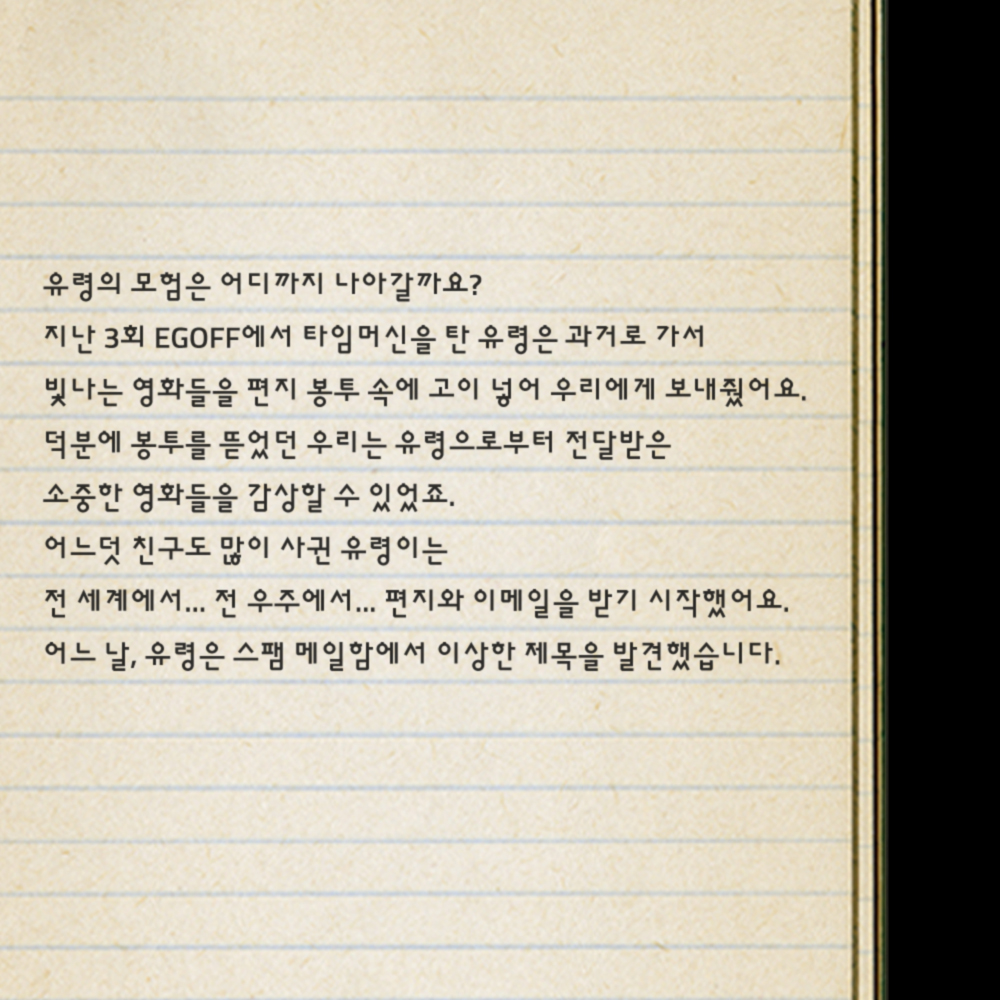 유령의 모험은 어디까지 나아갈까요?
지난 3회 EGOFF에서 타임머신을 탄 유령은 과거로 가서
빛나는 영화들을 편지 봉투 속에 고이 넣어 우리에게 보내줬어요.
덕분에 봉투를 뜯었던 우리는 유령으로부터 전달받은
소중한 영화들을 감상할 수 있었죠.
어느덧 친구도 많이 사귄 유령이는
전 세계에서... 전 우주에서... 편지와 이메일을 받기 시작했어요.
어느 날, 유령은 스팸 메일함에서 이상한 제목을 발견했습니다.